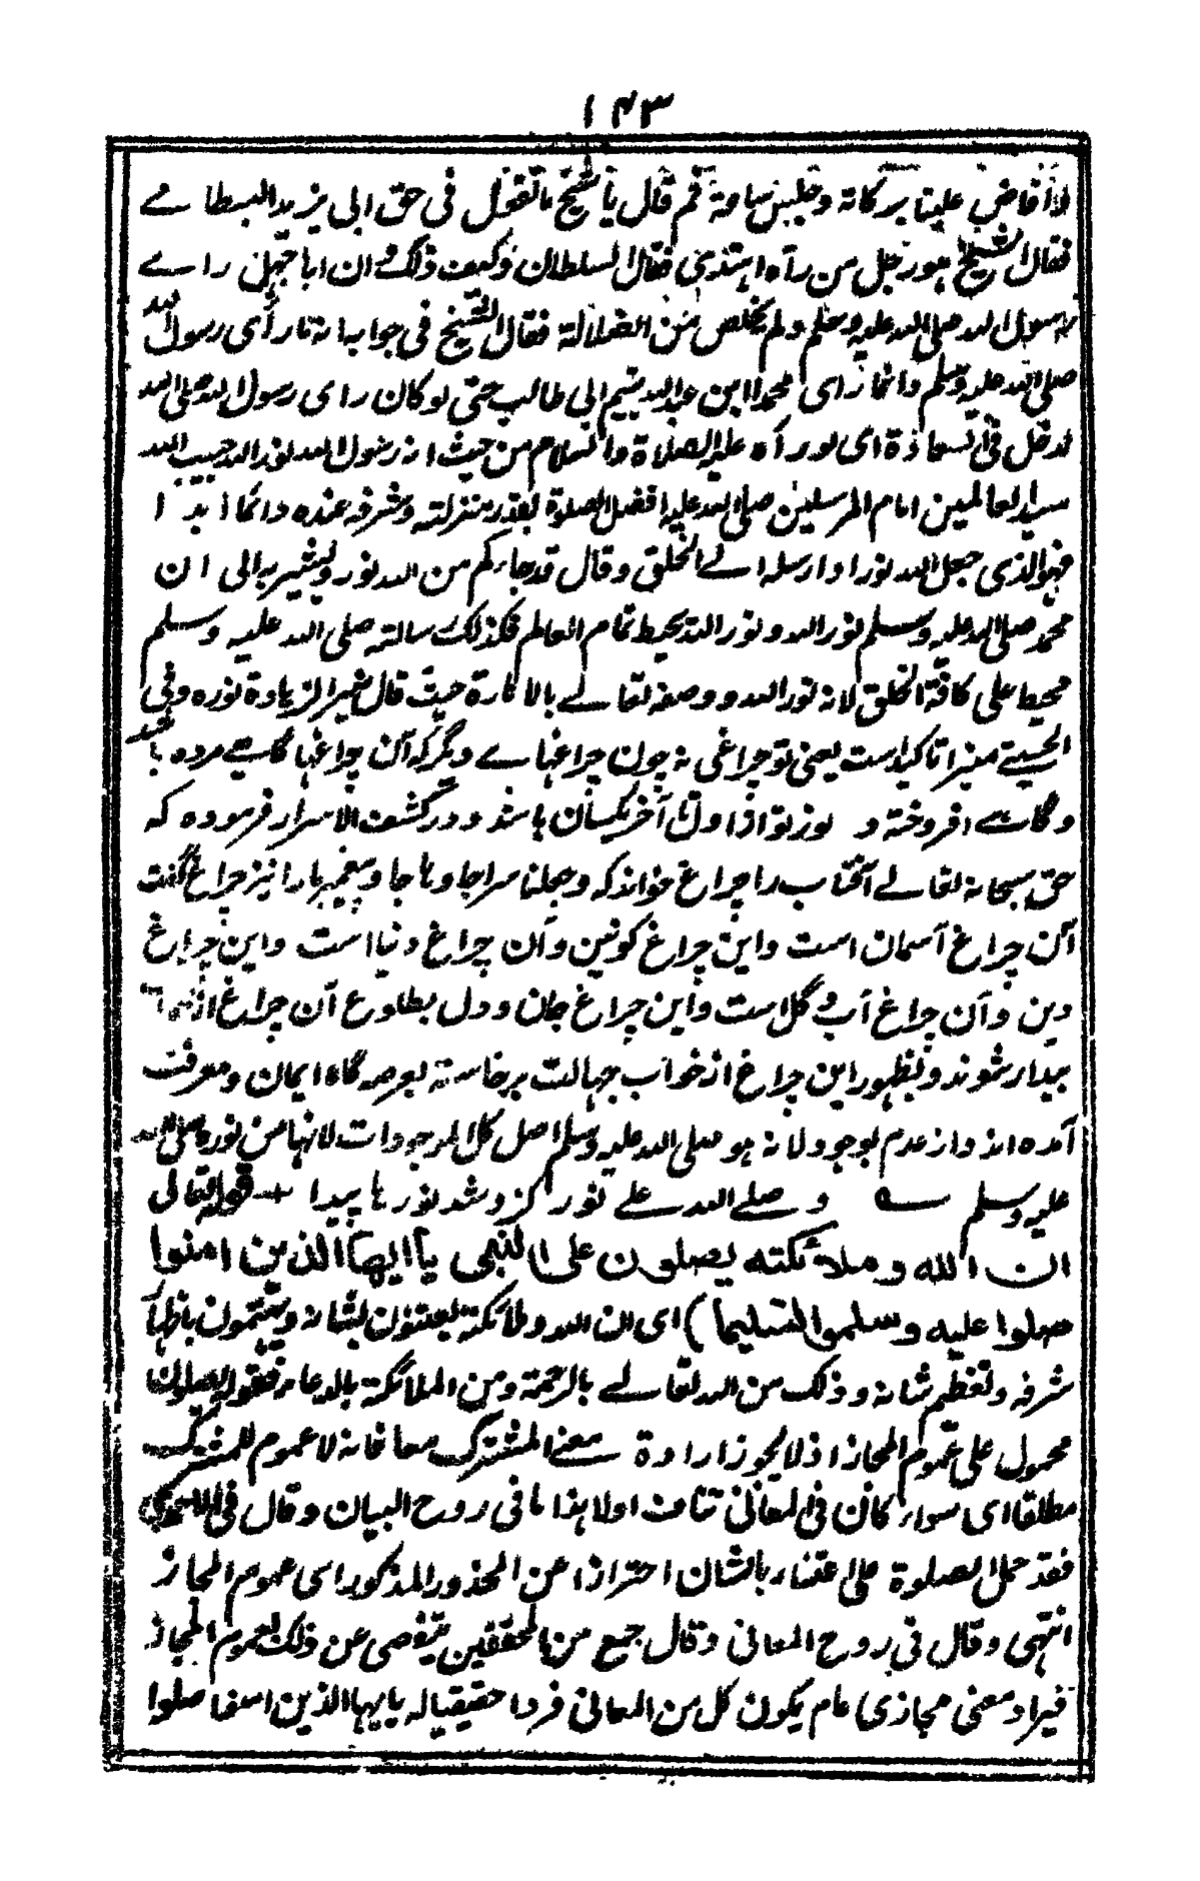 ۱۴۳
لا أفاض علینا برکاته وجلس ساعة ثم قال یا شیخ ما تقول فی حق ابی یزید البسطامے
فقال الشیخ هو رجل من رآه اهتدی فقال السلطان وکیف ذلک وان ابا جهل راے
رسول الله صلی الله علیه وسلم ولم یخلص من الضلالة فقال الشیخ فی جوابه انه ما رأی رسول الله
صلی الله علیه وسلم وانما رای محمدا ابن عبد الله یتیم ابی طالب حتی لو کان رای رسول الله صلی الله
لدخل فی السعادة ای لو رآه علیه الصلاة والسلام من حیث انه رسول الله نور الله حبیب الله
سید العالمین امام المرسلین صلی الله علیه افضل الصلوة بقدر منزلته وشرفه عنده دائما ابدا
فهو الذی جعل الله نورا وارسله الے الخلق وقال قد جاءکم من الله نور ویشیر به الی ان
محمد صلی الله علیه وسلم نور الله ونور الله یحیط تمام العالم فکذلک رسالته صلی الله علیه وسلم
محیط علی کافة الخلق لانه نور الله ووصفه تعالے بالانارة حیث قال منیرا لزیادة نوره وفی
الحسینے منیرا تاکید است یعنی تو چراغی نه چون چراغهاے دیگر که آن چراغها گاہے مرده باشد
و گاہے افروخته و نور تو از اول تا آخر یکسان باشد و در کشف الاسرار فرموده که
حق سبحانه تعالے آفتاب را چراغ خواند که وجعلنا سراجا وهاجا و پیغمبر ما را نیز چراغ گفت
آن چراغ آسمان است واین چراغ کونین وآن چراغ دنیا است واین چراغ
دین وآن چراغ آب و گل است واین چراغ جان و دل بطلوع آن چراغ از
بیدار شوند وبظهور این چراغ از خواب جهالت برخاسته بعرصه گاه ایمان ومعرفت
آمده اند واز عدم بوجود لانه هو صلی الله علیه وسلم اصل کل الموجودات لانها من نوره صلی الله
علیه وسلم ے و صلے الله علے نور کز و شد نور ها پیدا + قوله تعالی
ان الله وملائکته یصلون علی النبی یا ایها الذین امنوا
صلوا علیه وسلموا تسلیما) ای ان الله وملائکته یعتنون بشانه ویهتمون باظهار
شرفه وتعظیم شانه وذلک من الله تعالے بالرحمة ومن الملائکة بالدعاء فقوله یصلون
محمول علی عموم المجاز اذ لا یجوز ارادة معنے المشترک معا فانه لا عموم للمشترک
مطلقا ای سواء کان فی المعانی تناف اولا هذا ما فی روح البیان وقال فی
فقد حمل الصلوة علی اعتناء بالشان احترازا عن المحذور المذکور ای عموم المجاز
انتهی وقال فی روح المعانی وقال جمع من المحققین یتفصی عن ذلک بعموم المجاز
فیراد معنی مجازی عام یکون کل من المعانی فردا حقیقیا له یا یها الذین امنوا صلوا